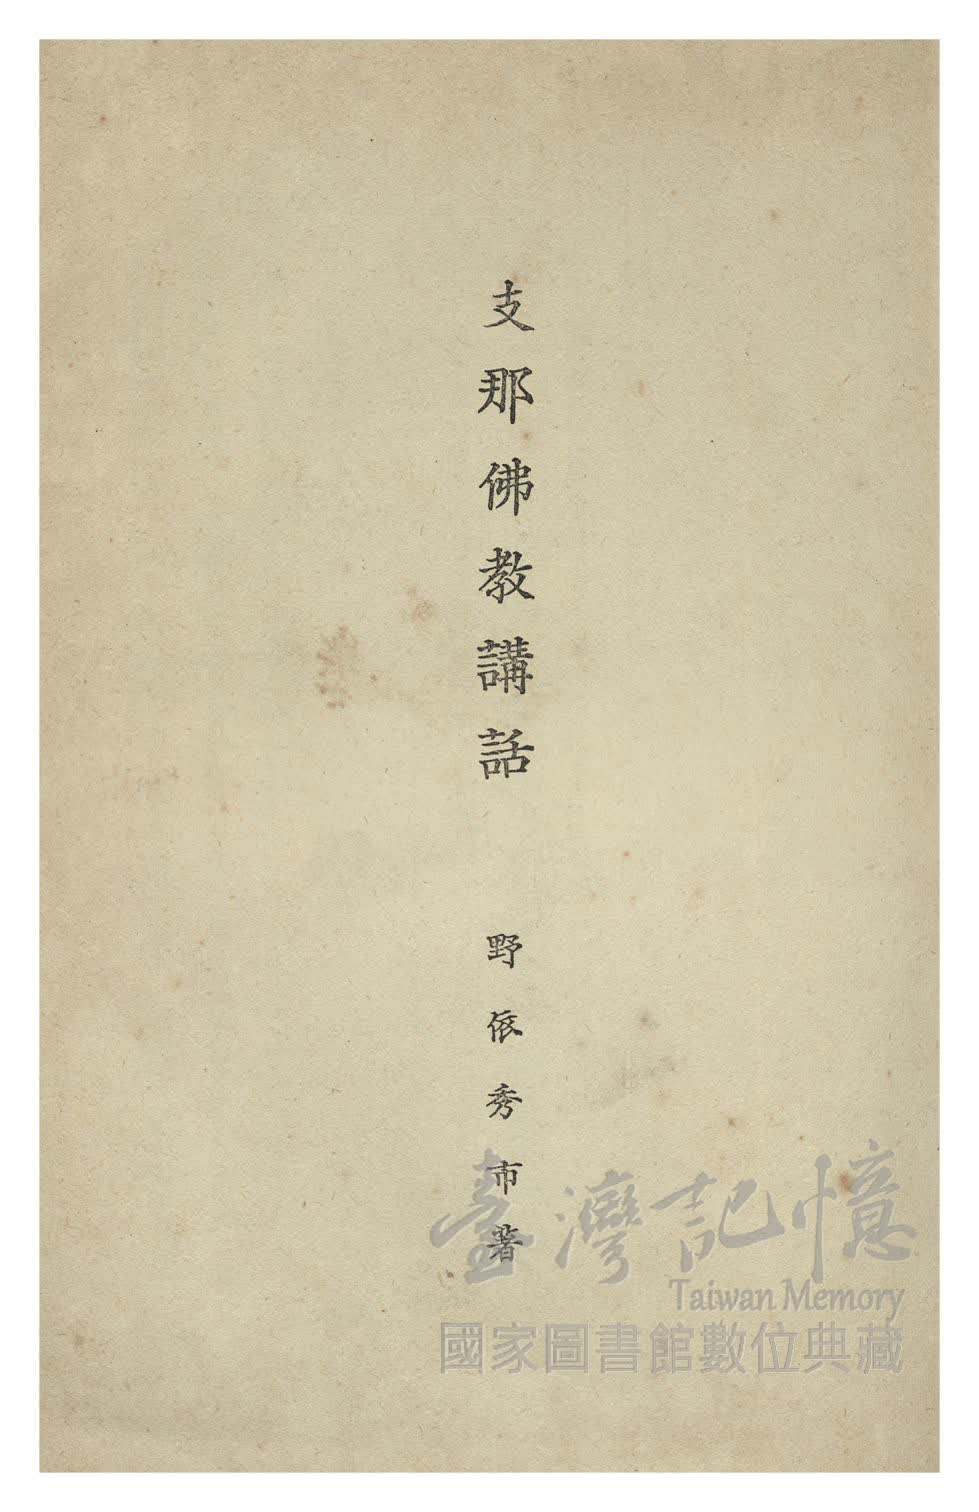 支那佛教講話
野依秀市著
臺灣記憶
Taiwan Memory
國家圖書館數位典藏